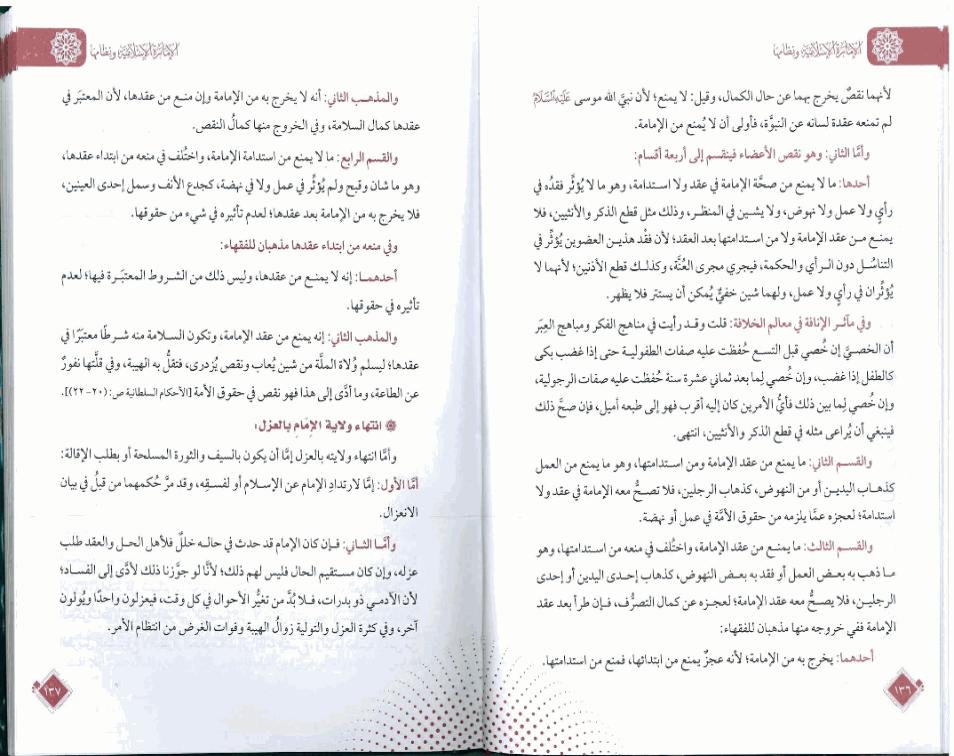 الإمارة الإسلامية ونظامها
لأنهما نقصٌ يخرج بهما عن حال الكمال، وقيل: لا يمنع؛ لأن نبيَّ الله موسى عَلَيْهِ السَّلَامُ
لم تمنعه عقدة لسانه عن النبوَّة، فأولى أن لا يُمنع من الإمامة.
وأمَّا الثاني: وهو نقص الأعضاء فينقسم إلى أربعة أقسام:
أحدها: ما لا يمنع من صحَّة الإمامة في عقد ولا استدامة، وهو ما لا يُؤثِّر فقدُه في
رأيٍ ولا عمل ولا نهوض، ولا يشين في المنظر، وذلك مثل قطع الذكر والأنثيين، فلا
يمنع من عقد الإمامة ولا من استدامتها بعد العقد؛ لأن فقْد هذين العضوين يُؤثِّر في
التناسُل دون الرأي والحكمة، فيجري مجرى العُنَّة، وكذلك قطع الأذنين؛ لأنهما لا
يُؤثِّران في رأي ولا عمل، ولهما شين خفيٌّ يُمكن أن يستتر فلا يظهر.
وفي مآثر الإنافة في معالم الخلافة: قلت وقد رأيت في مناهج الفكر ومباهج العِبَر
أن الخصيَّ إن خُصي قبل التسع حُفظت عليه صفات الطفولية حتى إذا غضب بكى
كالطفل إذا غضب، وإن خُصي لِما بعد ثماني عشرة سنة حُفظت عليه صفات الرجولية،
وإن خُصي لِما بين ذلك فأيُّ الأمرين كان إليه أقرب فهو إلى طبعه أميل، فإن صحَّ ذلك
فينبغي أن يُراعى مثله في قطع الذكر والأنثيين، انتهى.
والقسم الثاني: ما يمنع من عقد الإمامة ومن استدامتها، وهو ما يمنع من العمل
كذهاب اليدين أو من النهوض، كذهاب الرجلين، فلا تصحُّ معه الإمامة في عقد ولا
استدامة؛ لعجزه عمَّا يلزمه من حقوق الأمَّة في عمل أو نهضة.
والقسم الثالث: ما يمنع من عقد الإمامة، واختُلف في منعه من استدامتها، وهو
ما ذهب به بعض العمل أو فقد به بعض النهوض، كذهاب إحدى اليدين أو إحدى
الرجلين، فلا يصحُّ معه عقد الإمامة؛ لعجزه عن كمال التصرُّف، فإن طرأ بعد عقد
الإمامة ففي خروجه منها مذهبان للفقهاء:
أحدهما: يخرج به من الإمامة؛ لأنه عجزٌ يمنع من ابتدائها، فمنع من استدامتها.
١٣٦
الإمارة الإسلامية ونظامها
والمذهب الثاني: أنه لا يخرج به من الإمامة وإن منع من عقدها، لأن المعتبَر في
عقدها كمال السلامة، وفي الخروج منها كمالُ النقص.
والقسم الرابع: ما لا يمنع من استدامة الإمامة، واختُلف في منعه من ابتداء عقدها،
وهو ما شان وقبح ولم يُؤثِّر في عمل ولا في نهضة، كجدع الأنف وسمل إحدى العينين،
فلا يخرج به من الإمامة بعد عقدها؛ لعدم تأثيره في شيء من حقوقها.
وفي منعه من ابتداء عقدها مذهبان للفقهاء:
أحدهما: إنه لا يمنع من عقدها، وليس ذلك من الشروط المعتبَرة فيها؛ لعدم
تأثيره في حقوقها.
والمذهب الثاني: إنه يمنع من عقد الإمامة، وتكون السلامة منه شرطًا معتبَرًا في
عقدها؛ ليسلم وُلاة الملَّة من شين يُعاب ونقص يُزدرى، فتقلُّ به الهيبة، وفي قلَّتها نفورٌ
عن الطاعة، وما أدَّى إلى هذا فهو نقص في حقوق الأمة [الأحكام السلطانية ص: (٢٠-٢٢)].
❁ انتهاء ولاية الإمام بالعزل:
وأمَّا انتهاء ولايته بالعزل إمَّا أن يكون بالسيف والثورة المسلحة أو بطلب الإقالة:
أمَّا الأول: إمَّا لارتدادِ الإمام عن الإسلام أو لفسقِه، وقد مرَّ حُكمهما من قبلُ في بيان
الانعزال.
وأمَّا الثاني: فإن كان الإمام قد حدث في حاله خللٌ فلأهل الحل والعقد طلب
عزله، وإن كان مستقيم الحال فليس لهم ذلك؛ لأنَّا لو جوَّزنا ذلك لأدَّى إلى الفساد؛
لأن الآدمي ذو بدرات، فلا بُدَّ من تغيُّر الأحوال في كل وقت، فيعزلون واحدًا ويُولون
آخر، وفي كثرة العزل والتولية زوالُ الهيبة وفوات الغرض من انتظام الأمر.
١٣٧